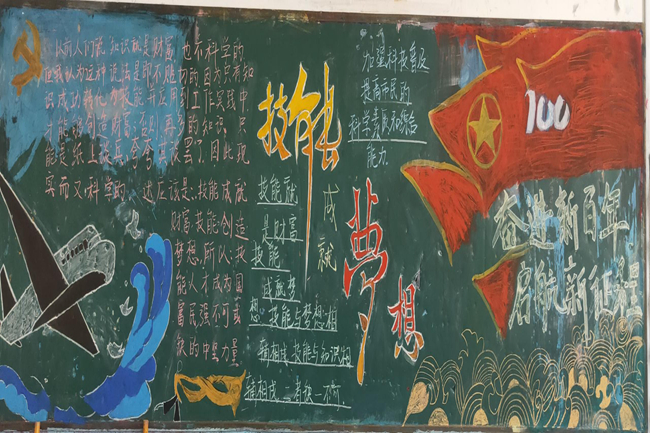 以前人们说 知识就是财富,也不科学的
但我认为这种说法是即不
识成功转化为技能并应用到工作实践中
才能够创造财富,否则再多的知识 只
能是纸上谈兵,夸夸其谈罢了,因此现
实而又科学的 述应该是:技能成就
财富,技能创造
梦想,所以,技
能人才成为国
富民强不可或
缺的中坚力量
技能
成
就
梦
想
技能就
是财富
技能
成就梦
想 技能与梦想相
辅相成 技能与知识相
辅相成 二者缺一不可.
加强科技普及
提高市民的
科学素质和综合
能力
100
奋进新百年
启航新征程